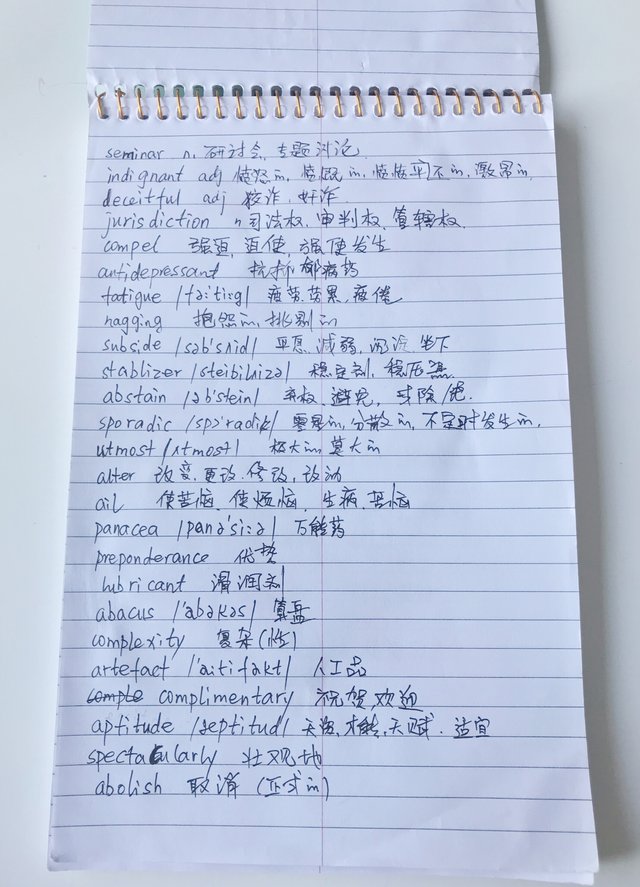 seminar n. 研讨会, 专题讨论.
indignant adj 愤怒的, 愤慨的, 愤愤不平的, 激昂的.
deceitful adj 狡诈, 奸诈.
jurisdiction n 司法权, 审判权, 管辖权.
compel 强迫, 迫使, 强使发生
antidepressant 抗抑郁病药
fatigue /fə:ti:g/ 疲劳, 劳累, 疲倦
nagging 抱怨的, 挑剔的
subside /səb'sʌid/ 平息, 减弱, 沉淀, 坐下
stablizer /steibilizə/ 稳定剂, 稳压器
abstain /əb'stein/ 弃权, 避免, 戒除
sporadic /spə'radik/ 零星的, 分散的, 不定时发生的.
utmost /ʌtmost/ 极大的 莫大的
alter 改变, 更改, 修改, 改动
ail 使苦恼, 使烦恼, 生病, 苦恼
panacea /panə'si:ə/ 万能药
preponderance 优势
lubricant 滑润剂
abacus /'abəkəs/ 算盘
complexity 复杂(性)
artefact /'a:tifakt/ 人工品
comple complimentary 祝贺, 欢迎
aptitude /septitud/ 天资, 才能, 天赋. 适宜
spectacularly 壮观地
abolish 取消 (正式的)